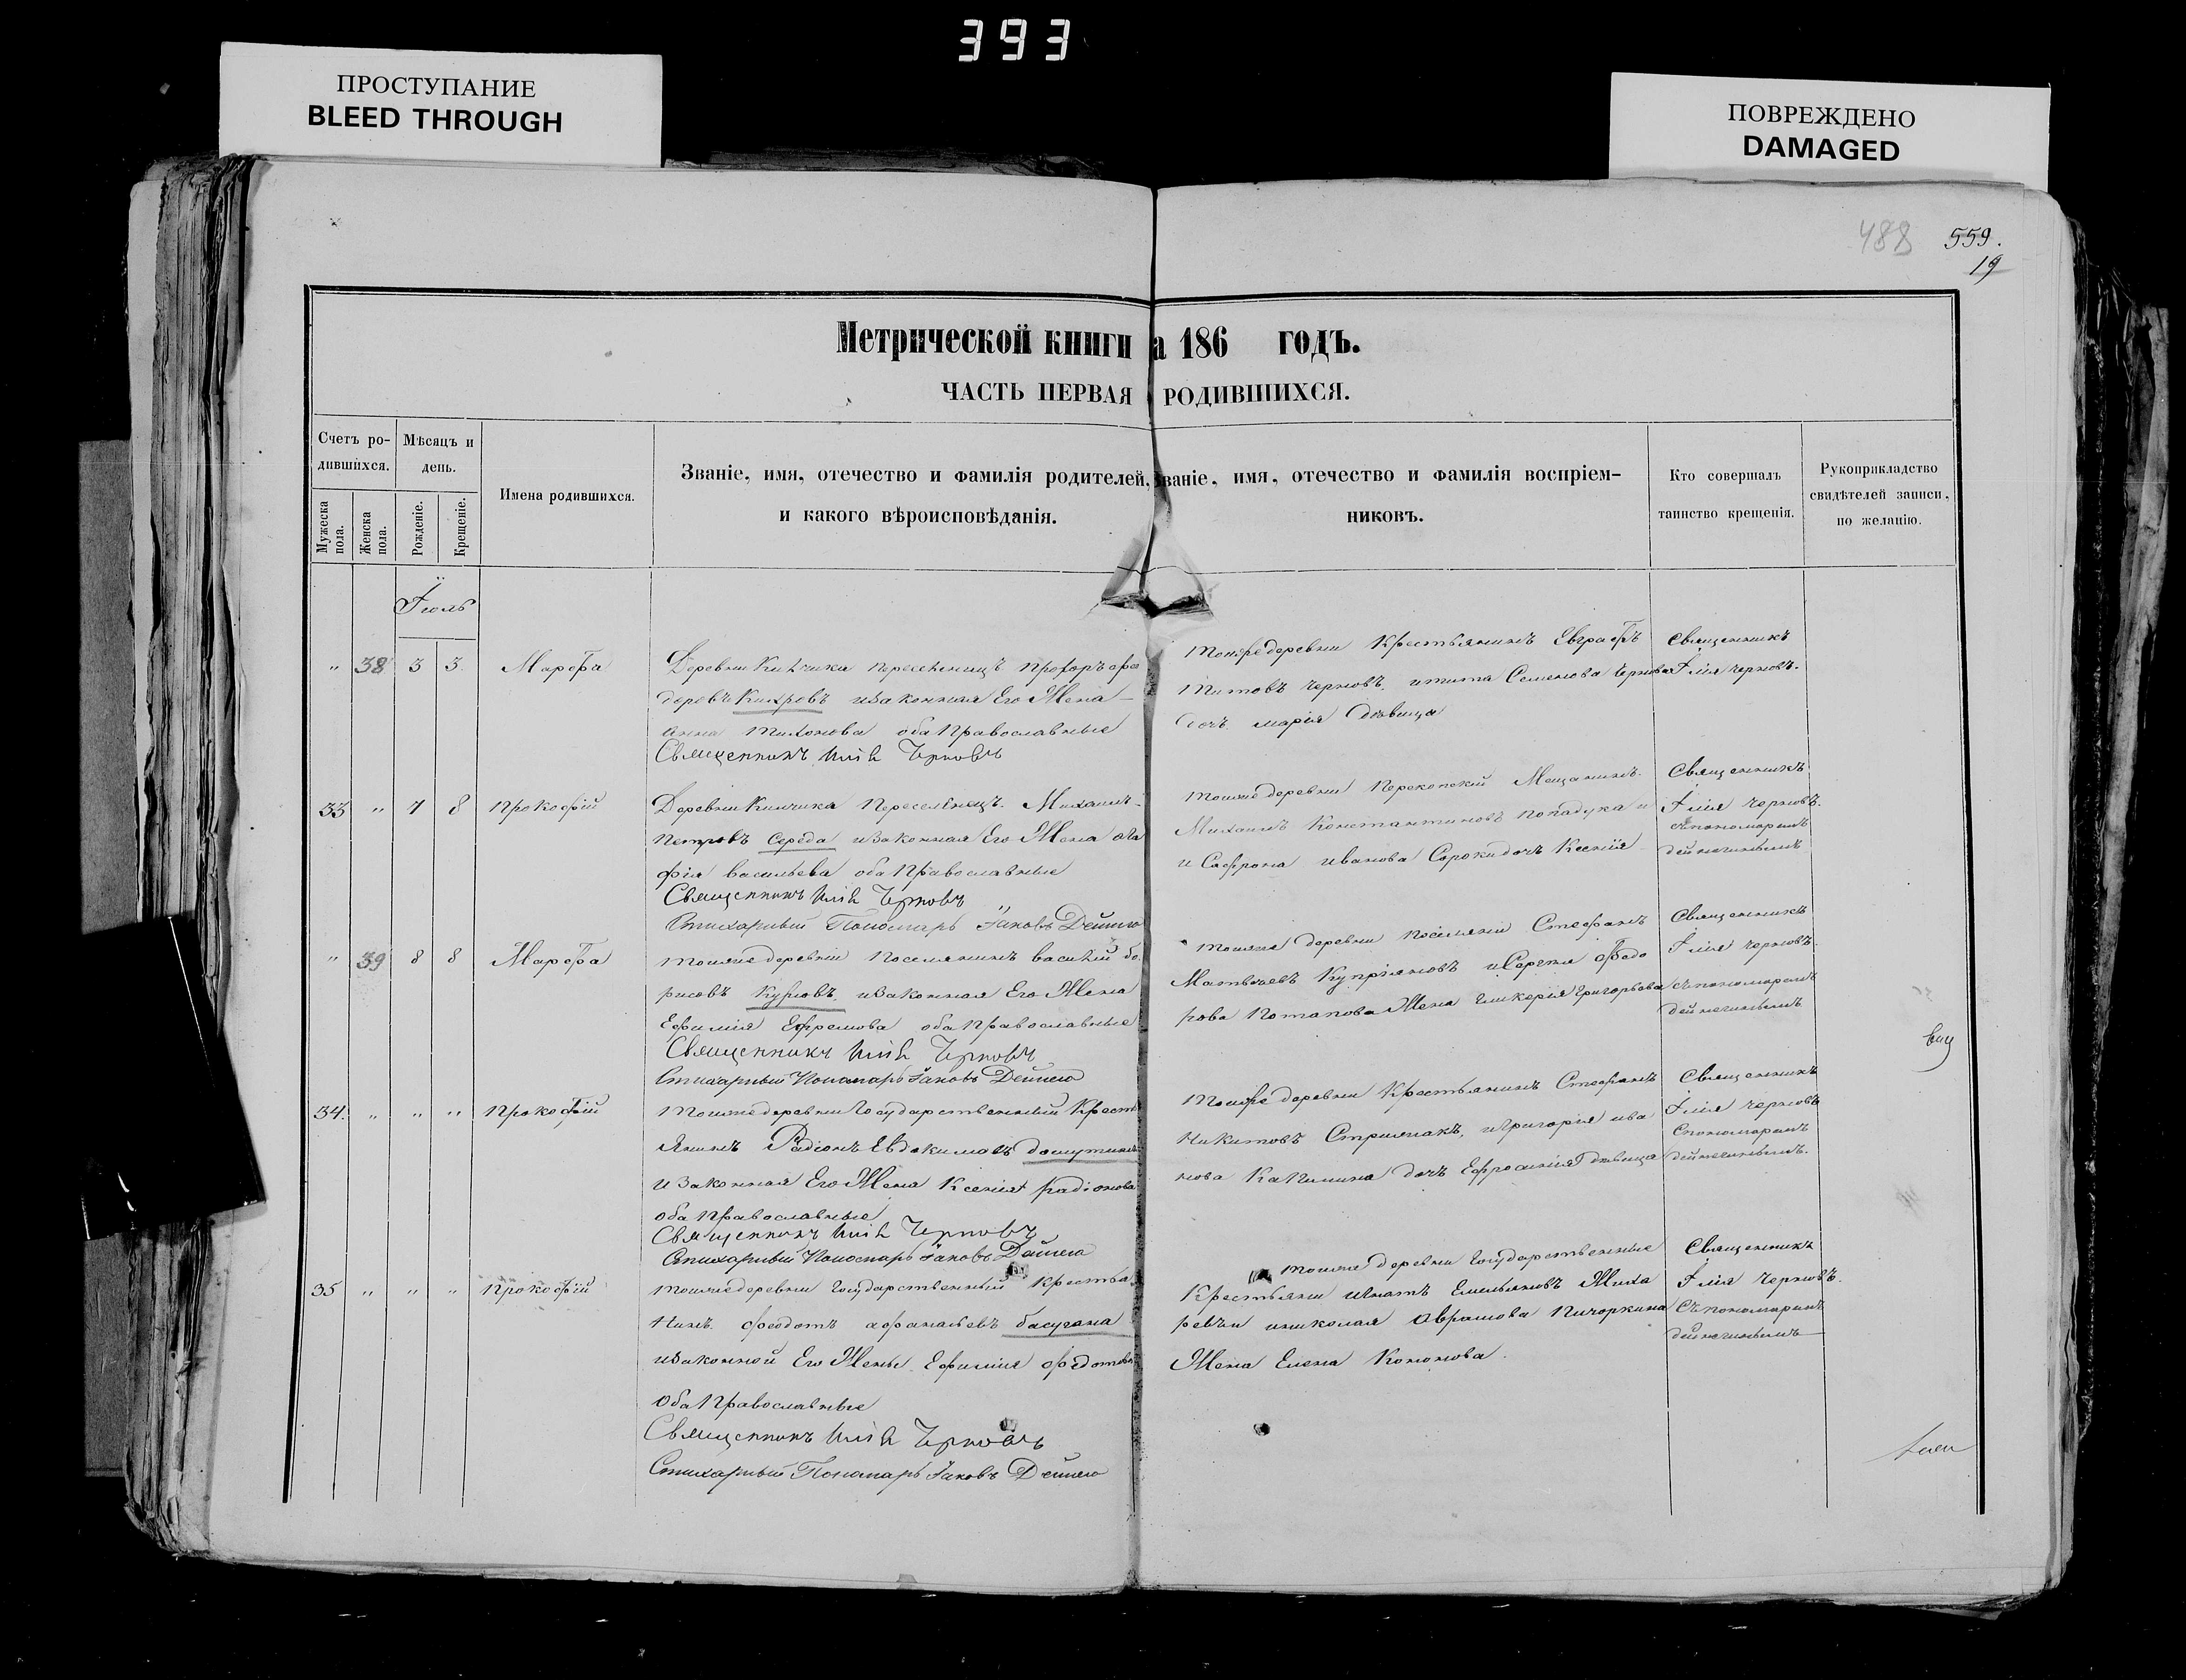 393
ПРОСТУПАНИЕ
BLEED THROUGH
ПОВРЕЖДЕНО
DAMAGED
488 559.
19
Метрической книги а 186 годъ.
ЧАСТЬ ПЕРВАЯ РОДИВШИХСЯ.
Счетъ ро-
дившихся.
Мужеска
пола.
Женска
пола.
Мѣсяцъ и
день.
Рожденіе.
Крещеніе.
Имена родившихся.
Званіе, имя, отечество и фамилія родителей,
и какого вѣроисповѣданія.
Званіе, имя, отечество и фамилія воспріем-
никовъ.
Кто совершалъ
таинство крещенія.
Рукоприкладство
свидѣтелей записи,
по желанію.
Іюль
" 38 3 3. Марѳа
Деревни Кинчика переселенецъ Прохоръ Фео
доровъ изаконная Его Жена
Анна Тихонова оба Православные
Священникъ Илія Черновъ
Тойже деревни Крестьянинъ Евграфъ
Титовъ Черновъ, и Тита Семенова Чернова
дочь Марія дѣвица
Священникъ
Илія Черновъ.
33 " 7 8 Прокофій
Деревни Кинчика Переселенецъ Михаилъ
Петровъ Середа изаконная Его Жена Ага
фія Васильева оба Православные
Священникъ Илія Черновъ
Стихарный Пономарь Іаковъ
Тойже деревни Перекопскій Мещанинъ
Михаилъ Константиновъ Попадука и
и Сафрона Иванова Сороки дочь Ксенія
Священникъ
Илія Черновъ.
спономаремъ
" 39 8 8 Марѳа
Тойже деревни Поселянинъ Василій Бо
рисовъ изаконная Его Жена
Ефимія Ефремова оба Православные
Священникъ Илія Черновъ
Стихарный Пономарь Іаковъ
Тояже деревни поселяни Стефанъ
Матвѣевъ Купріяновъ и Сергея Ѳедо
рова Потапова Жена Гликерія Григорьева
Священникъ
Илія Черновъ.
съпономаремъ
34. " " " Прокофій
Тойже деревни Государственный Крест
янинъ Радіонъ Евдокимовъ
и Законная Его Жена Ксенія Радіонова
оба Православные
Священникъ Илія Черновъ
Стихарный Пономарь Іаковъ
Тойже деревни Крестьянинъ Стефанъ
Никитовъ и Григорія Ива
нова Капинина дочь Ефросинія дѣвица
Священникъ
Илія Черновъ
Спономаремъ
35 " " " Прокофій
Тойже деревни Государственный Крестья
нинъ Феодотъ Афанасьевъ
изаконной Его Жены Ефимія Федотова
Оба Православные
Священникъ Илія Черновъ
Стихарный Пономарь Іаковъ
Тояже деревни Государственные
Крестьяни Игнатъ Емельяновъ Жиха
ревъ и Николая Аврамова Пичоркина
Жена Елена Кононова.
Священникъ
Илія Черновъ.
Съпономаремъ